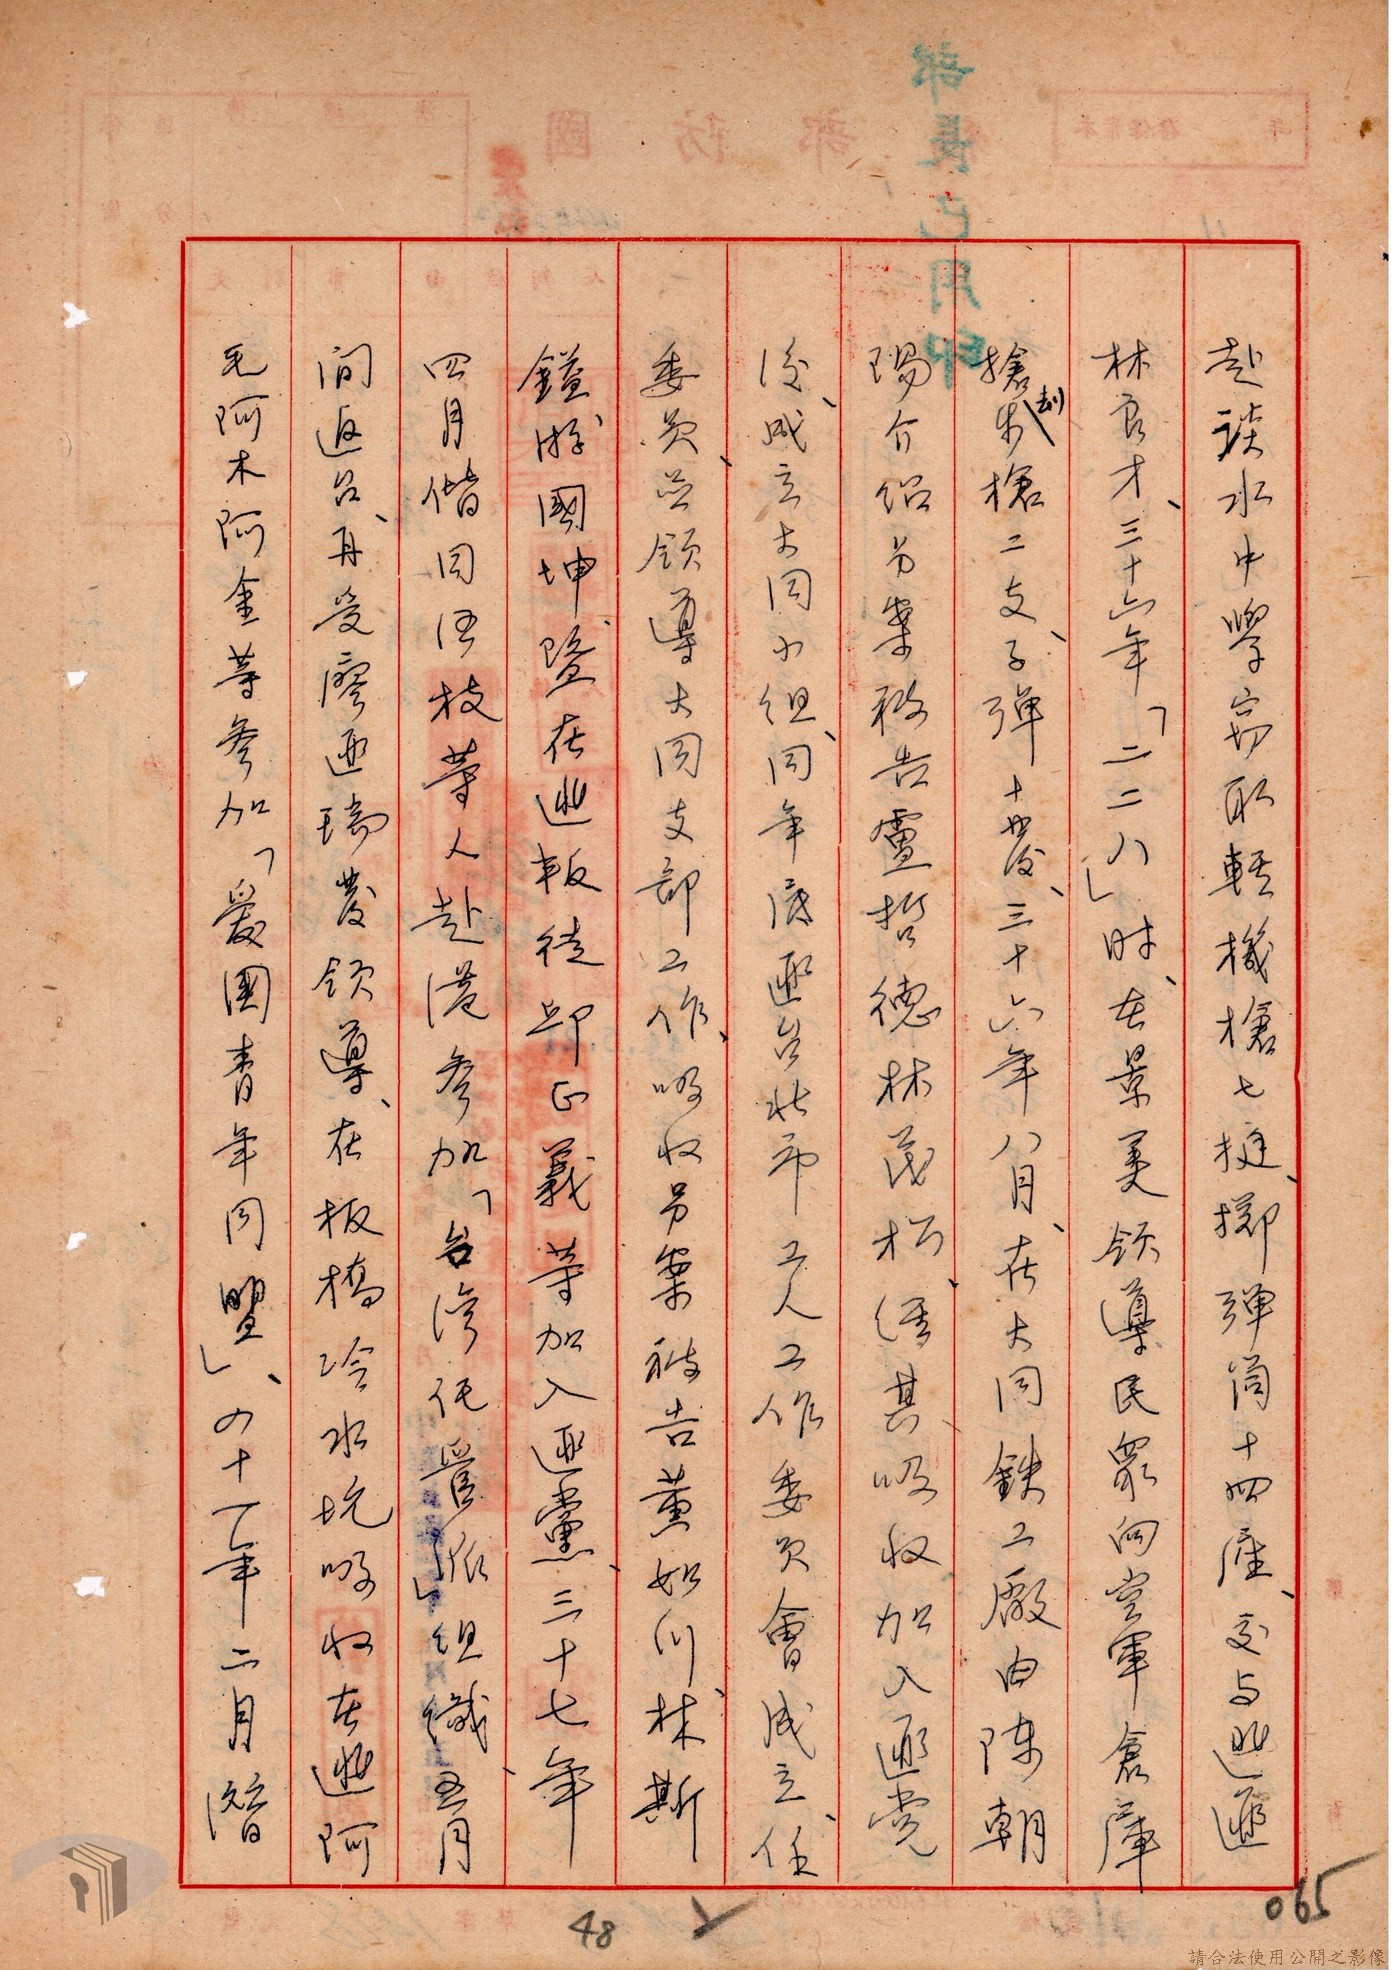 赴淡水中學竊取輕機槍七挺、擲彈筒十四座、交与逃匪
林良才、三十六年「二二八」时、在景美領導民眾向空軍倉庫
搶劫步槍二支、子彈十發、三十六年八月、在大同鉄工廠由陳朝
陽介紹另案被告盧哲德林茂松、經其吸收加入匪党
後、成立大同小組、同年底匪台北市工人工作委員會成立、任
委員、並領導大同支部工作、吸收另案被告董如川、林斯
鎰游國坤、暨在逃叛徒邱正義等加入匪黨、三十七年
四月偕同伍枝等人赴港參加「台灣託管派」組織、五月
间返台、再受廖匪瑞發領導、在板橋冷水坑吸收在逃阿
毛阿木阿金等參加「愛國青年同盟」、四十一年二月潛
065
48
部長已用印
國防部
請合法使用公開之影像